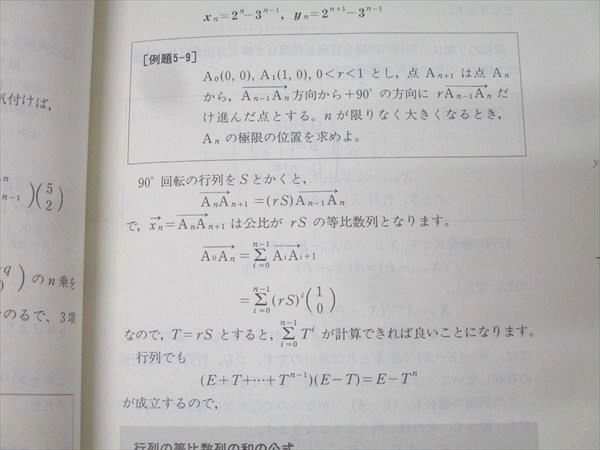 x_n=2^n−3^{n−1}, y_n=2^{n+1}−3^{n−1}
[例題5-9]
A₀(0, 0), A₁(1, 0), 0<r<1 とし，点 A_{n+1} は点 A_n
から，\overrightarrow{A_{n−1}A_n} 方向から＋90°の方向に r\overrightarrow{A_{n−1}A_n} だ
け進んだ点とする。n が限りなく大きくなるとき，
A_n の極限の位置を求めよ。
90°回転の行列を S とかくと，
\overrightarrow{A_nA_{n+1}}=(rS)\overrightarrow{A_{n−1}A_n}
で，\overrightarrow{x_n}=\overrightarrow{A_nA_{n+1}} は公比が rS の等比数列となります。
\overrightarrow{A_0A_n}=\sum_{i=0}^{n−1}\overrightarrow{A_iA_{i+1}}
=\sum_{i=0}^{n−1}(rS)^i\begin{pmatrix}1\\0\end{pmatrix}
なので，T=rS とすると，\sum_{i=0}^{n−1}T^i が計算できれば良いことになります。
行列でも
(E+T+⋯+T^{n−1})(E−T)=E−T^n
が成立するので，
行列の等比数列の和の公式
気付けば，
)\begin{pmatrix}5\\2\end{pmatrix}
の n 乗を
のるで，3項